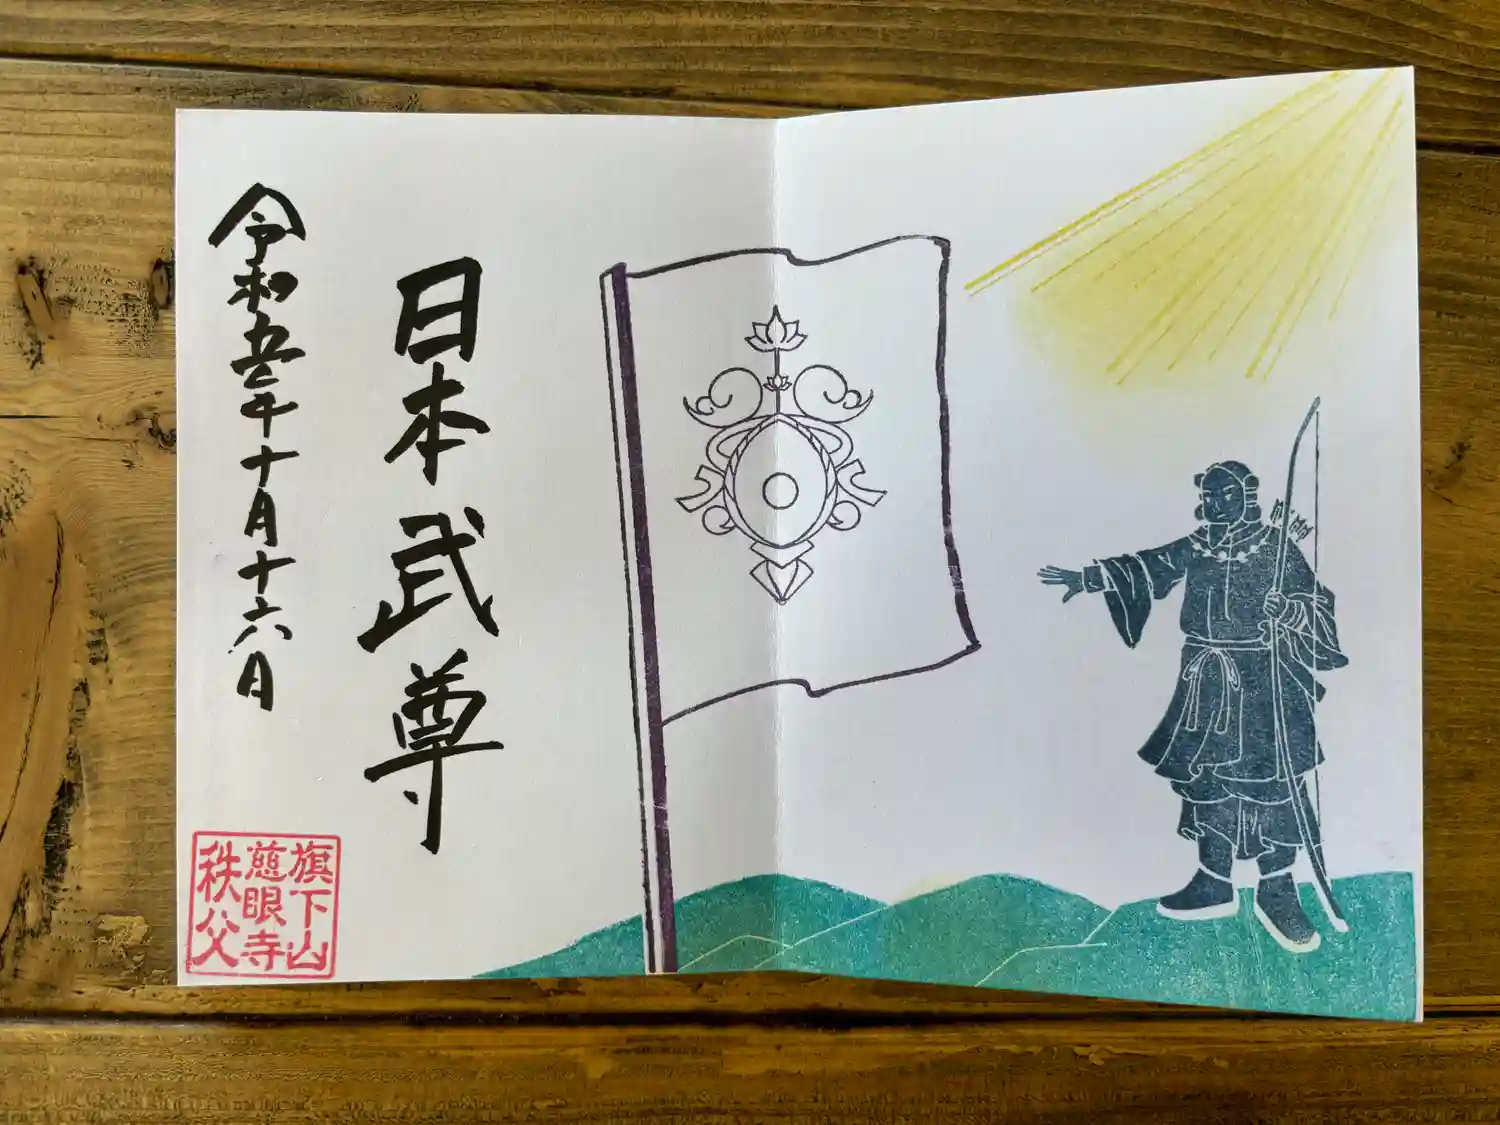 日本武尊
令和五年十月十六日
旗下山
慈眼寺
秩父